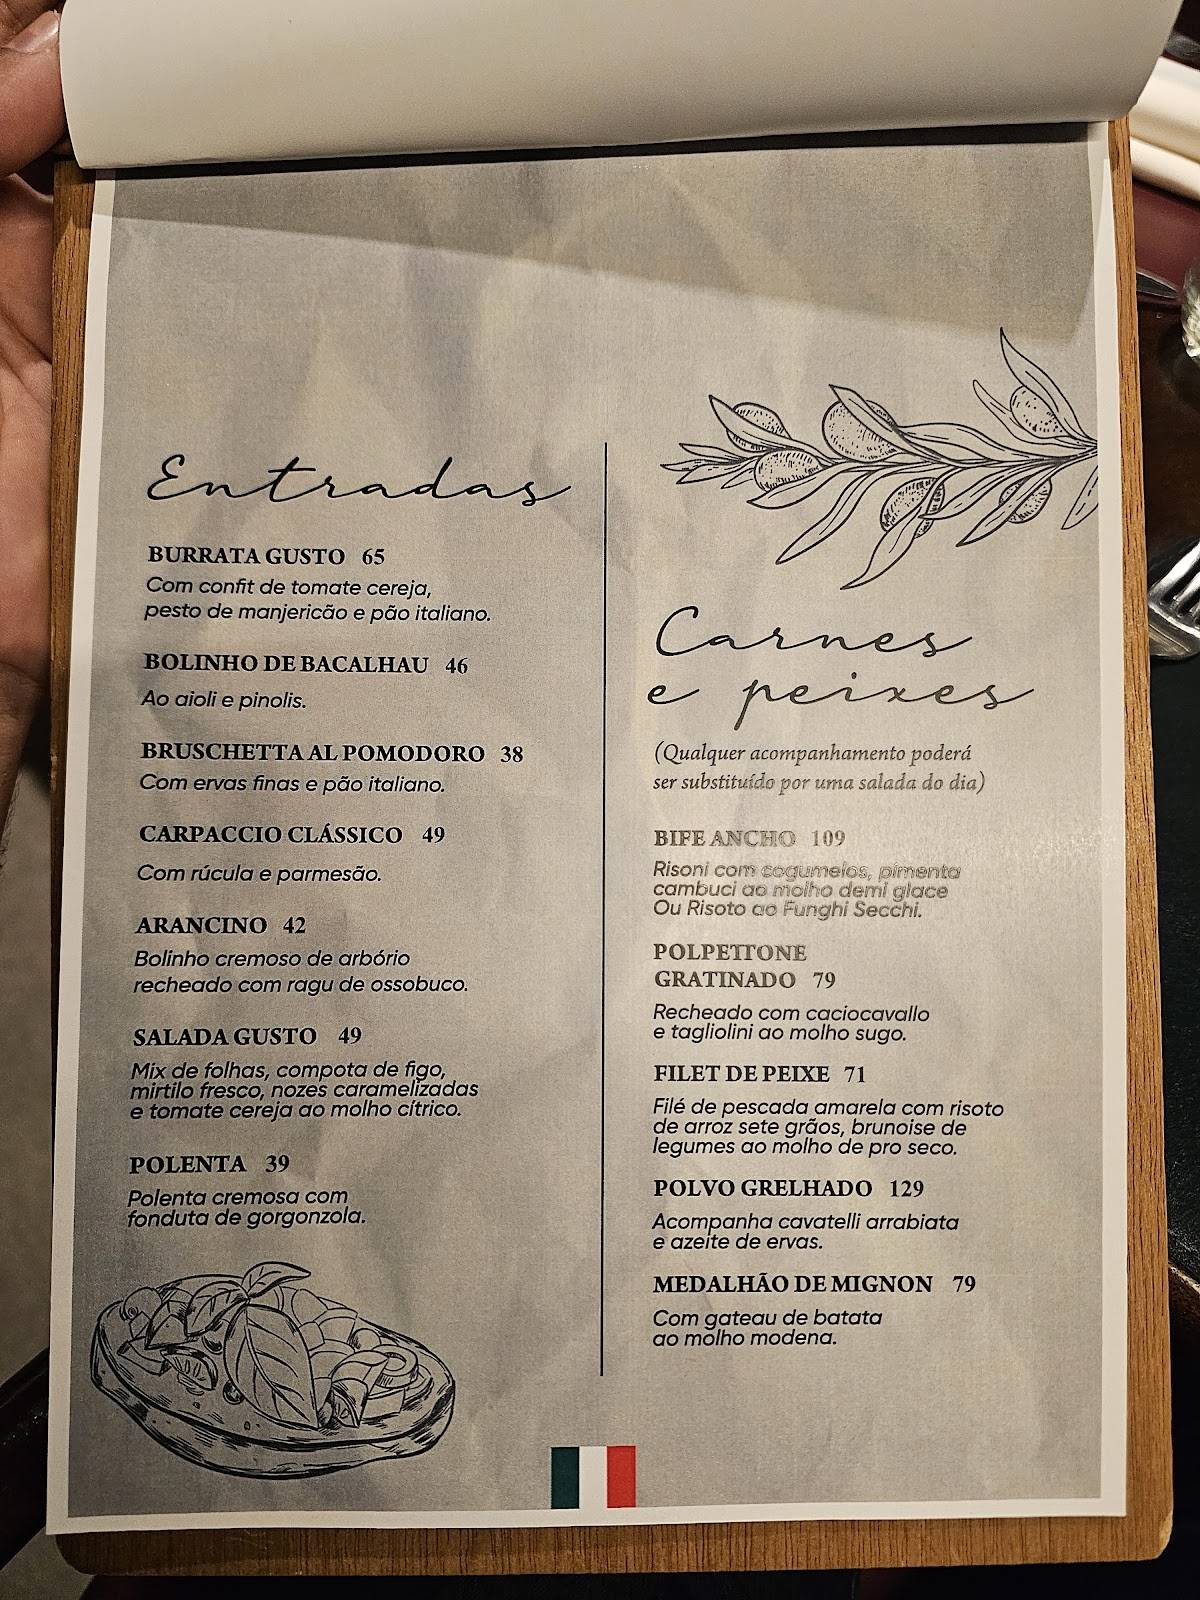 Entradas
BURRATA GUSTO 65
Com confit de tomate cereja,
pesto de manjericão e pão italiano.
BOLINHO DE BACALHAU 46
Ao aioli e pinolis.
BRUSCHETTA AL POMODORO 38
Com ervas finas e pão italiano.
CARPACCIO CLÁSSICO 49
Com rúcula e parmesão.
ARANCINO 42
Bolinho cremoso de arbório
recheado com ragu de ossobuco.
SALADA GUSTO 49
Mix de folhas, compota de figo,
mirtilo fresco, nozes caramelizadas
e tomate cereja ao molho cítrico.
POLENTA 39
Polenta cremosa com
fonduta de gorgonzola.
Carnes
e peixes
(Qualquer acompanhamento poderá
ser substituído por uma salada do dia)
BIFE ANCHO 109
Risoni com cogumelos, pimenta
cambuci ao molho demi glace
Ou Risoto ao Funghi Secchi.
POLPETTONE
GRATINADO 79
Recheado com caciocavallo
e tagliolini ao molho sugo.
FILET DE PEIXE 71
Filé de pescada amarela com risoto
de arroz sete grãos, brunoise de
legumes ao molho de pro seco.
POLVO GRELHADO 129
Acompanha cavatelli arrabiata
e azeite de ervas.
MEDALHÃO DE MIGNON 79
Com gateau de batata
ao molho modena.